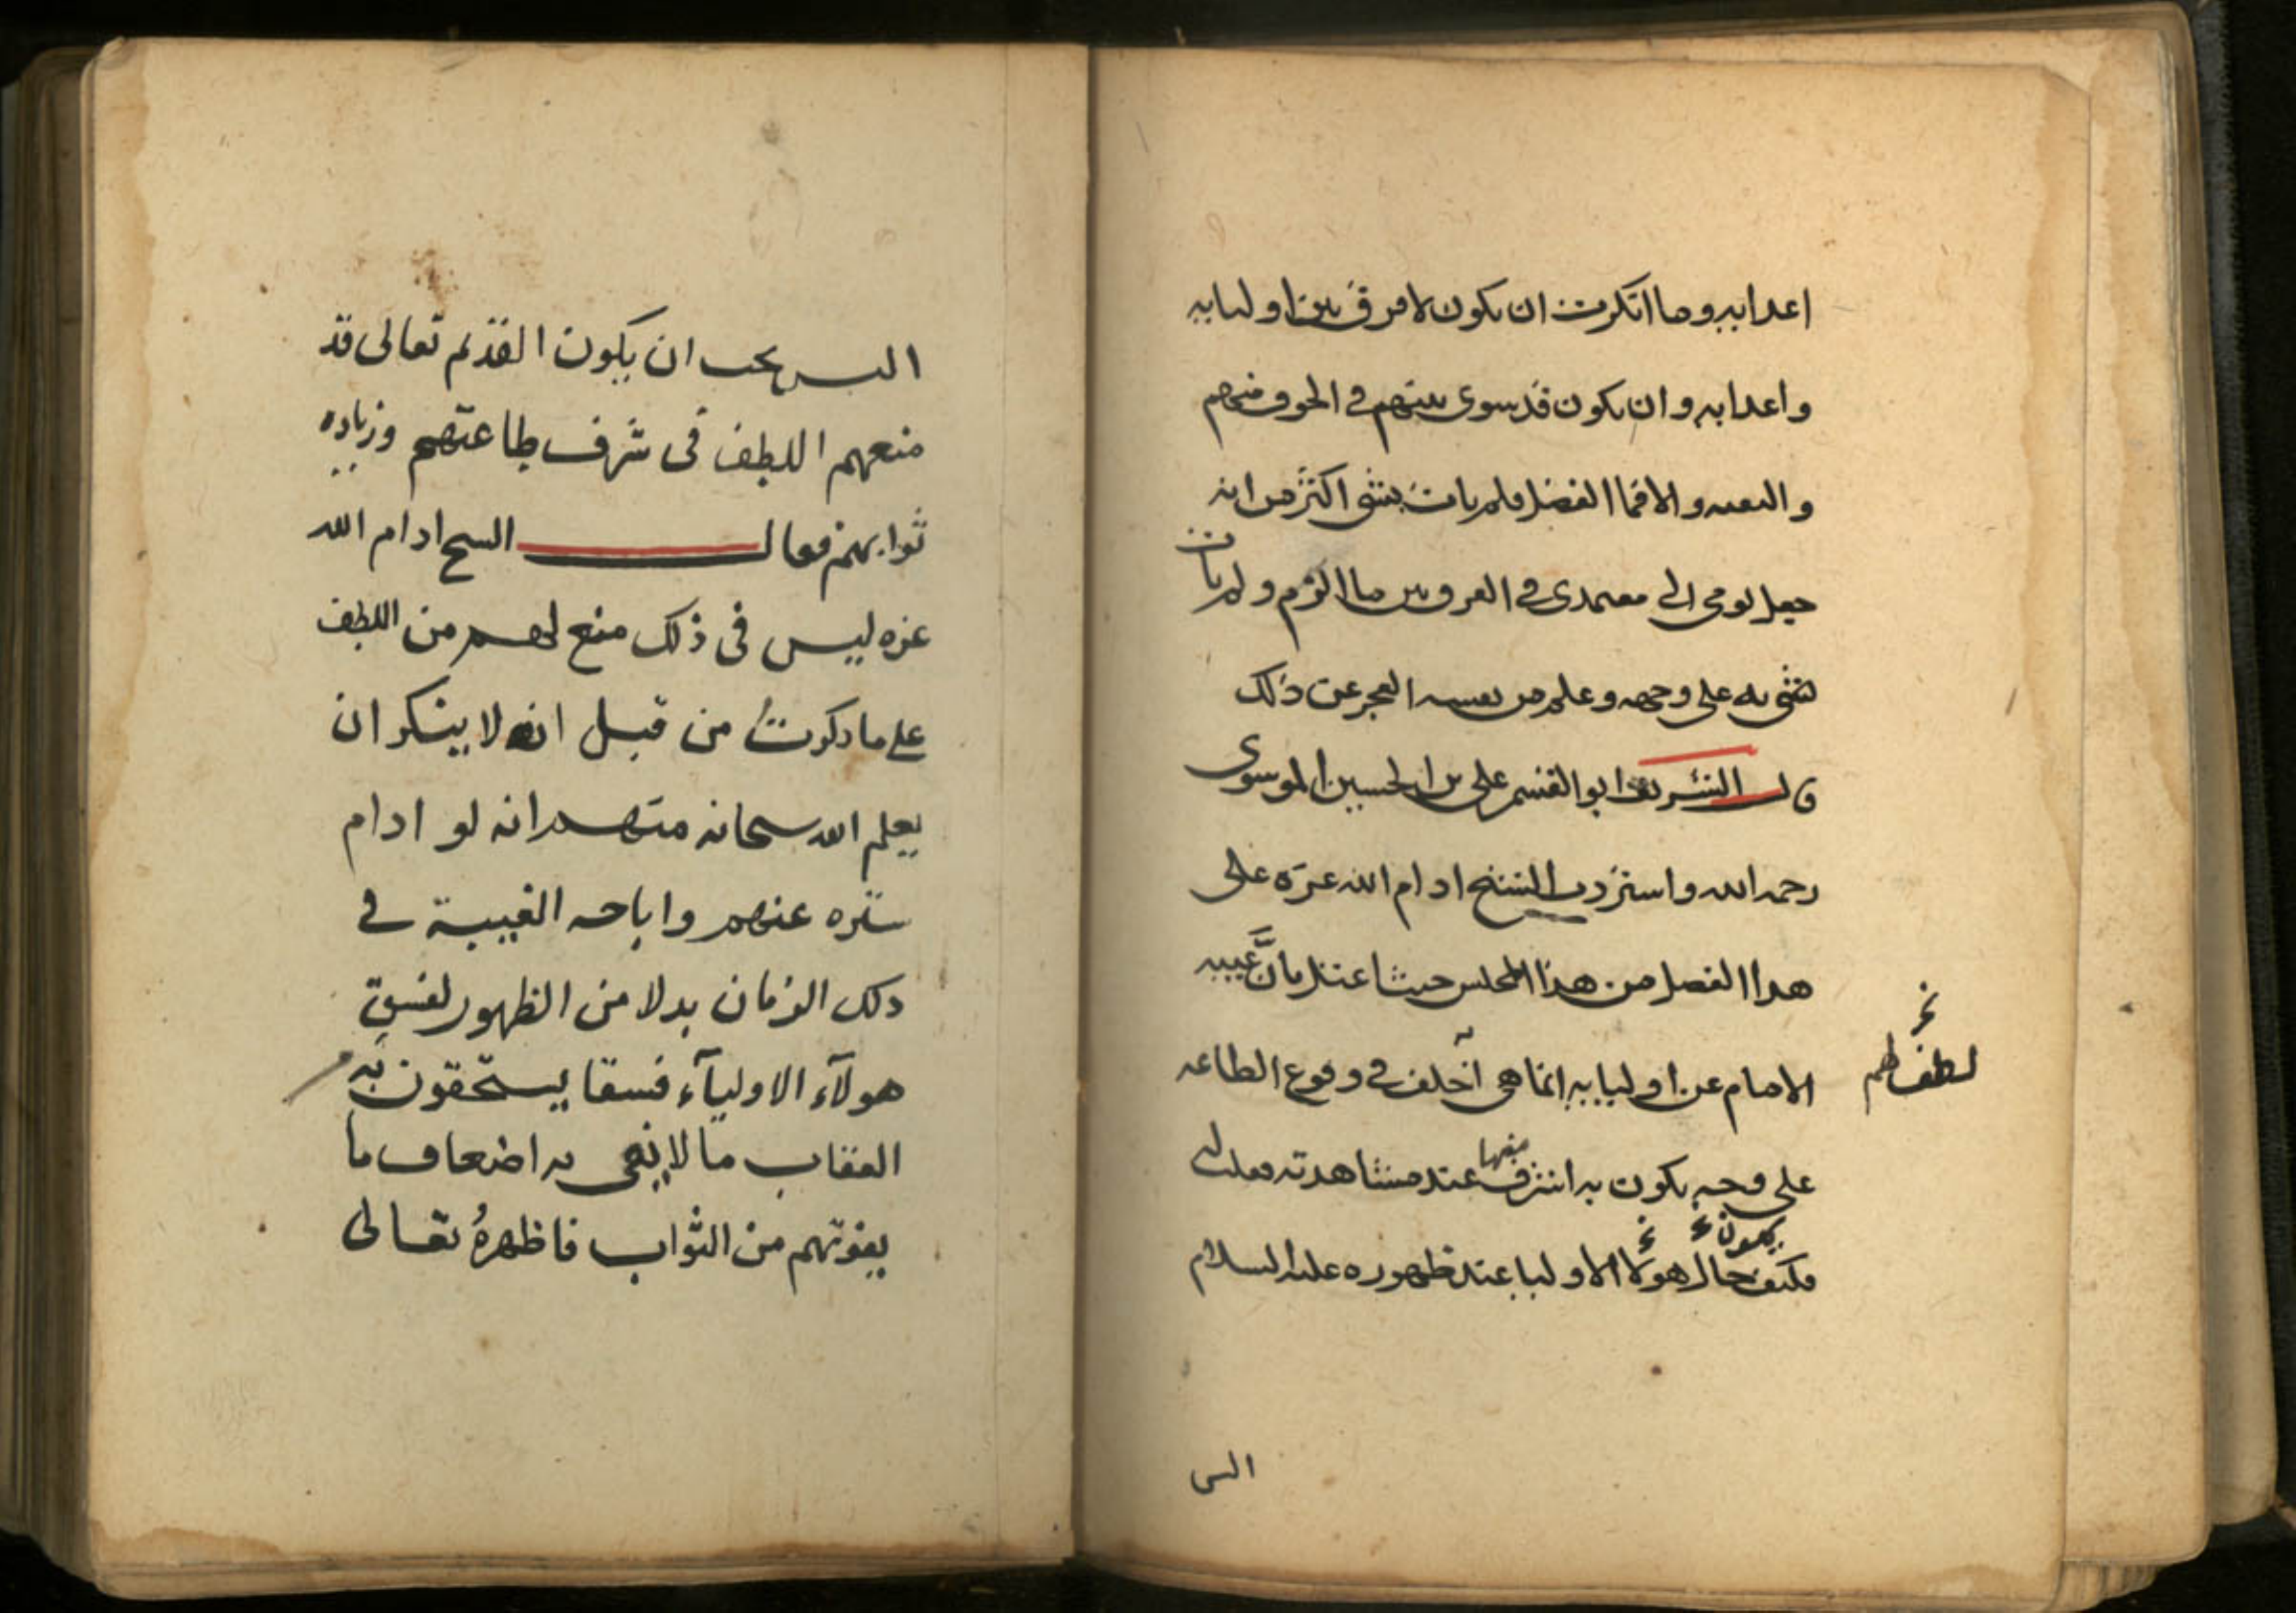 اعدايه وما انكرت ان يكون لا فرق بين اوليايه
واعدايه وان يكون قد سوى بينهم في الخوف منهم
والتقيه والا فما الفصل فلم يات بشي اكثر من انه
جعل يومي الى معتمدي في الفرق بين ما الزم ولم يات
بشي به على وجهه وعلم من نفسه العجز عن ذلك
قال الشريف ابو القسم علي بن الحسين الموسوي
رحمه الله واستزدت الشيخ ادام الله عزه على
هذا الفصل من هذا المجلس حيث اعتل بان غيبه
الامام عن اوليايه انما هي لطف لهم في وقوع الطاعه
على وجه يكون به اشرف منها عند مشاهدته فقلت له
فكيف يكون حال هولا الاوليا عند ظهوره عليه السلام
اليس
اليس يجب ان يكون القديم تعالى قد
منعهم اللطف في شرف طاعتهم وزياده
ثوابهم فقال الشيخ ادام الله
عزه ليس في ذلك منع لهم من اللطف
على ما ذكرت من قبل انه لا ينكر ان
يعلم الله سبحانه منهم انه لو ادام
ستره عنهم واباحه الغيبة في
ذلك الزمان بدلا من الظهور لفسق
هولآء الاوليآء فسقا يستحقون به
العقاب ما لا يفي به اضعاف ما
يفوتهم من الثواب فاظهرهُ تعالى